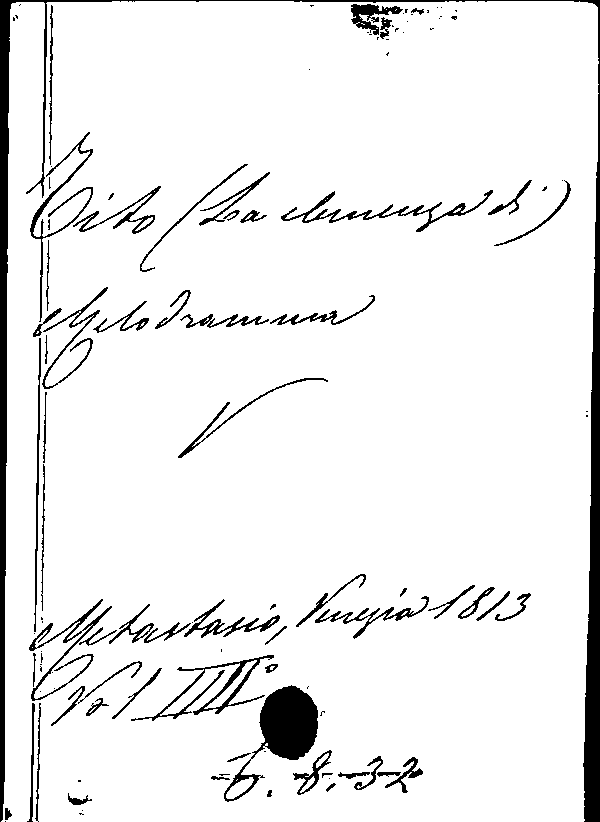 Tito (La clemenza di)
Melodramma
V
Metastasio, Venezia 1813
Vol IIII°
6. 8. 32